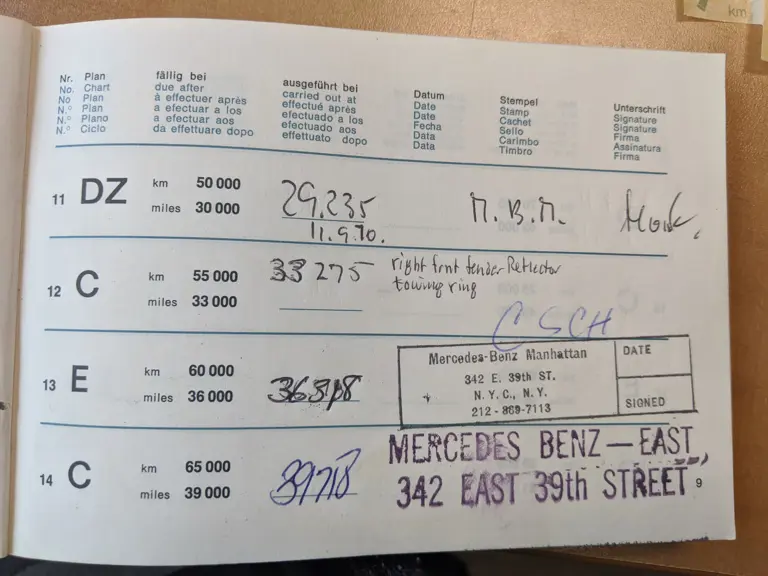 km
Nr. Plan fällig bei ausgeführt bei Datum Stempel Unterschrift
No. Chart due after carried out at Date Stamp Signature
No Plan à effectuer après effectué après Date Cachet Signature
N.º Plan a efectuar a los efectuado a los Fecha Sello Firma
N.º Plano a efectuar aos efectuado aos Data Carimbo Assinatura
N.º Ciclo da effettuare dopo effettuato dopo Data Timbro Firma
11 DZ km 50 000
miles 30 000
29.235 M.B.M.
11.9.70.
12 C km 55 000
miles 33 000
33 275 right frnt fender Reflector
towing ring
CSCH
13 E km 60 000
miles 36 000
Mercedes-Benz Manhattan DATE
342 E. 39th ST.
N.Y.C., N.Y.
212-889-7113 SIGNED
14 C km 65 000
miles 39 000
39718
MERCEDES BENZ — EAST,
342 EAST 39th STREET
9